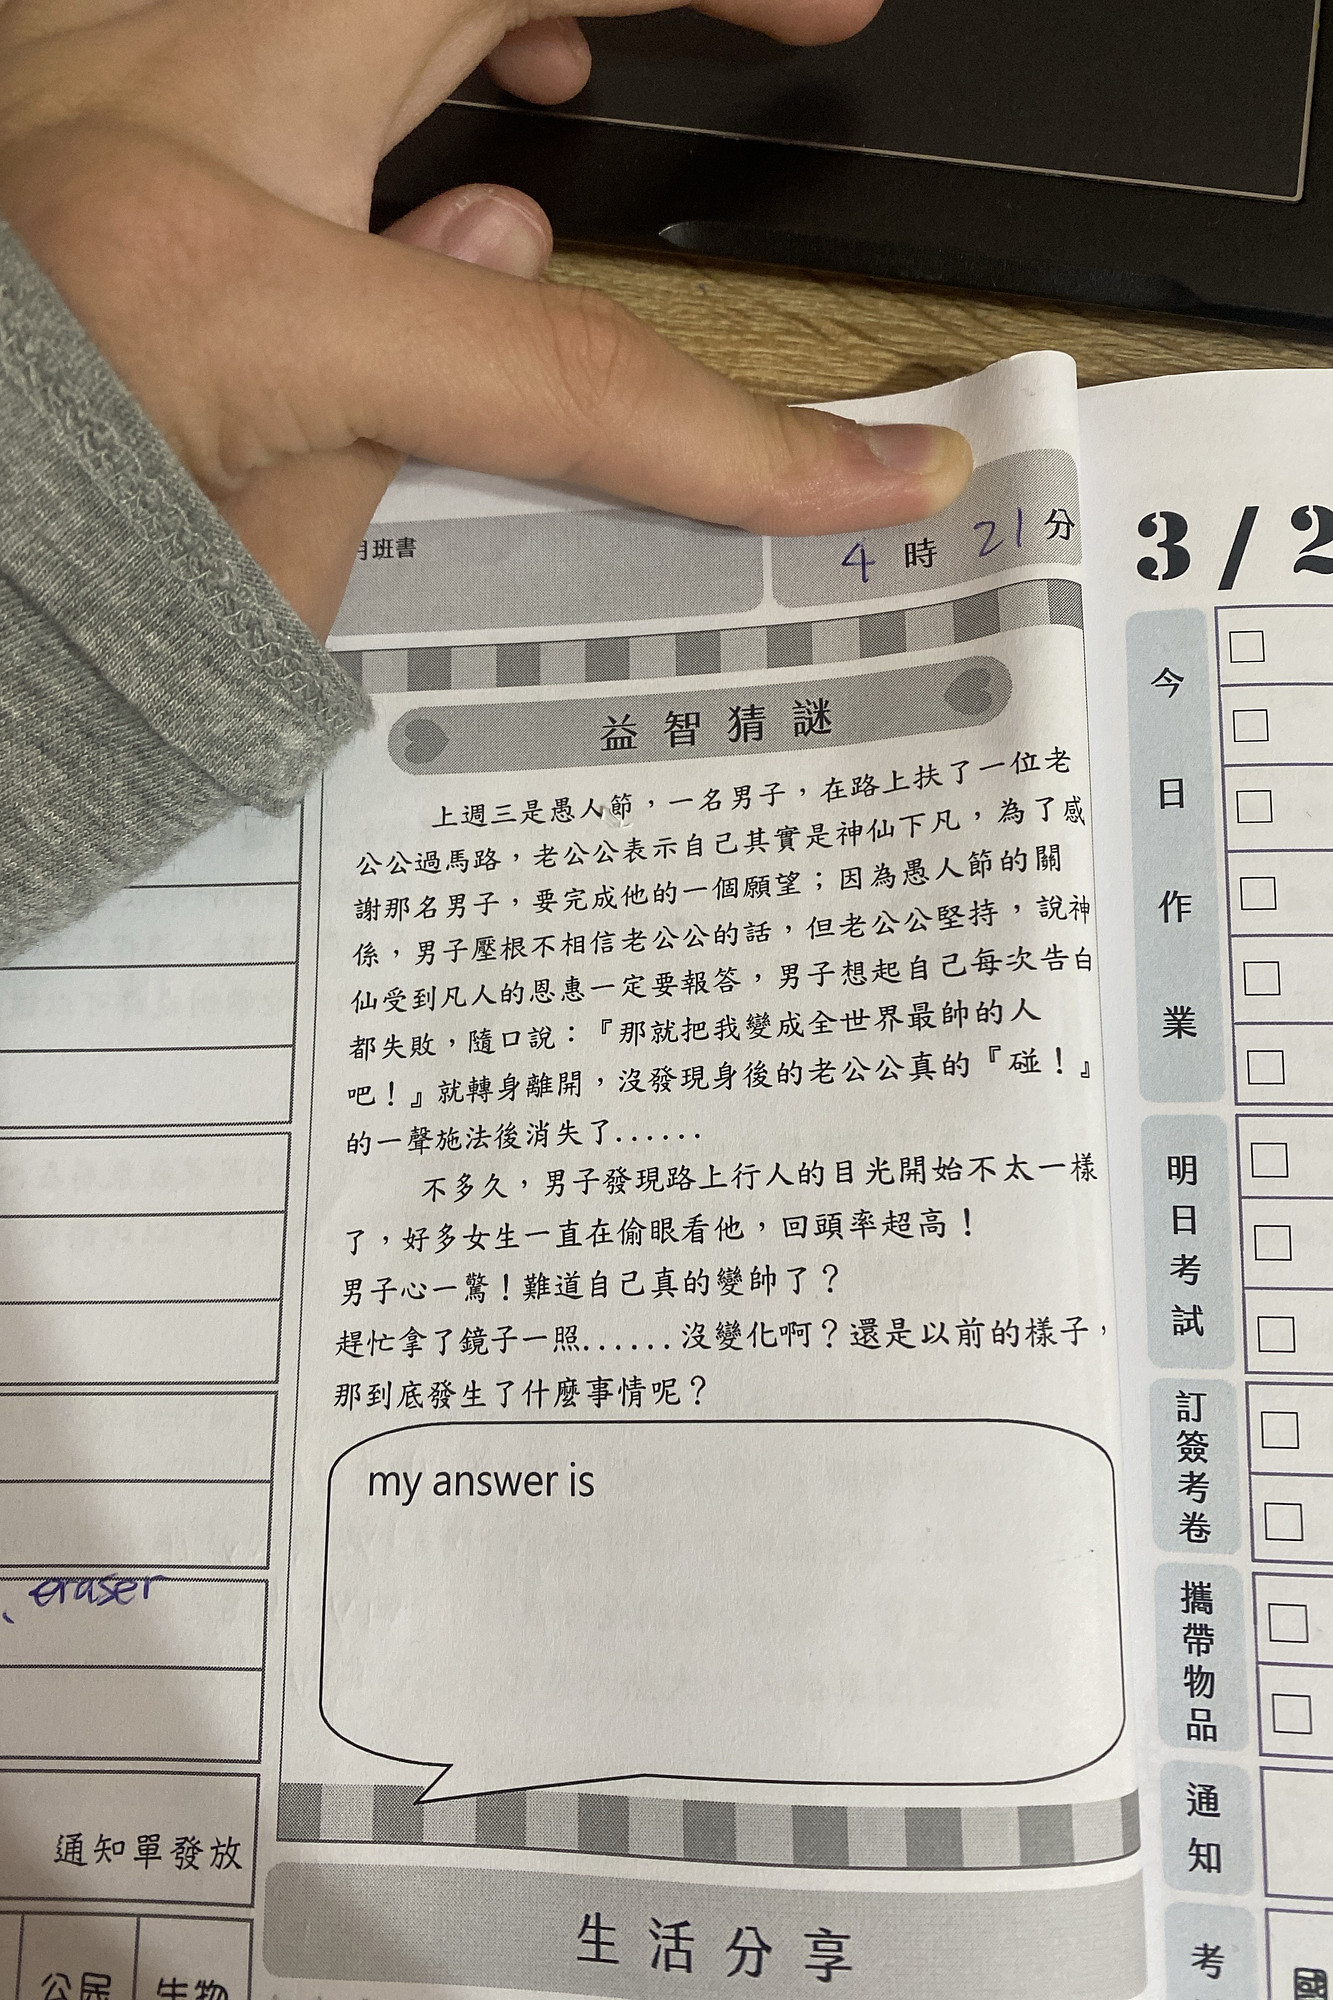 月班書
4 時 21 分
益智猜謎
上週三是愚人節，一名男子，在路上扶了一位老
公公過馬路，老公公表示自己其實是神仙下凡，為了感
謝那名男子，要完成他的一個願望；因為愚人節的關
係，男子壓根不相信老公公的話，但老公公堅持，說神
仙受到凡人的恩惠一定要報答，男子想起自己每次告白
都失敗，隨口說：『那就把我變成全世界最帥的人
吧！』就轉身離開，沒發現身後的老公公真的『碰！』
的一聲施法後消失了......
不多久，男子發現路上行人的目光開始不太一樣
了，好多女生一直在偷眼看他，回頭率超高！
男子心一驚！難道自己真的變帥了？
趕忙拿了鏡子一照......沒變化啊？還是以前的樣子，
那到底發生了什麼事情呢？
my answer is
生活分享
eraser
通知單發放
公民
生物
3/2
今日作業
明日考試
訂簽考卷
攜帶物品
通知
考
國